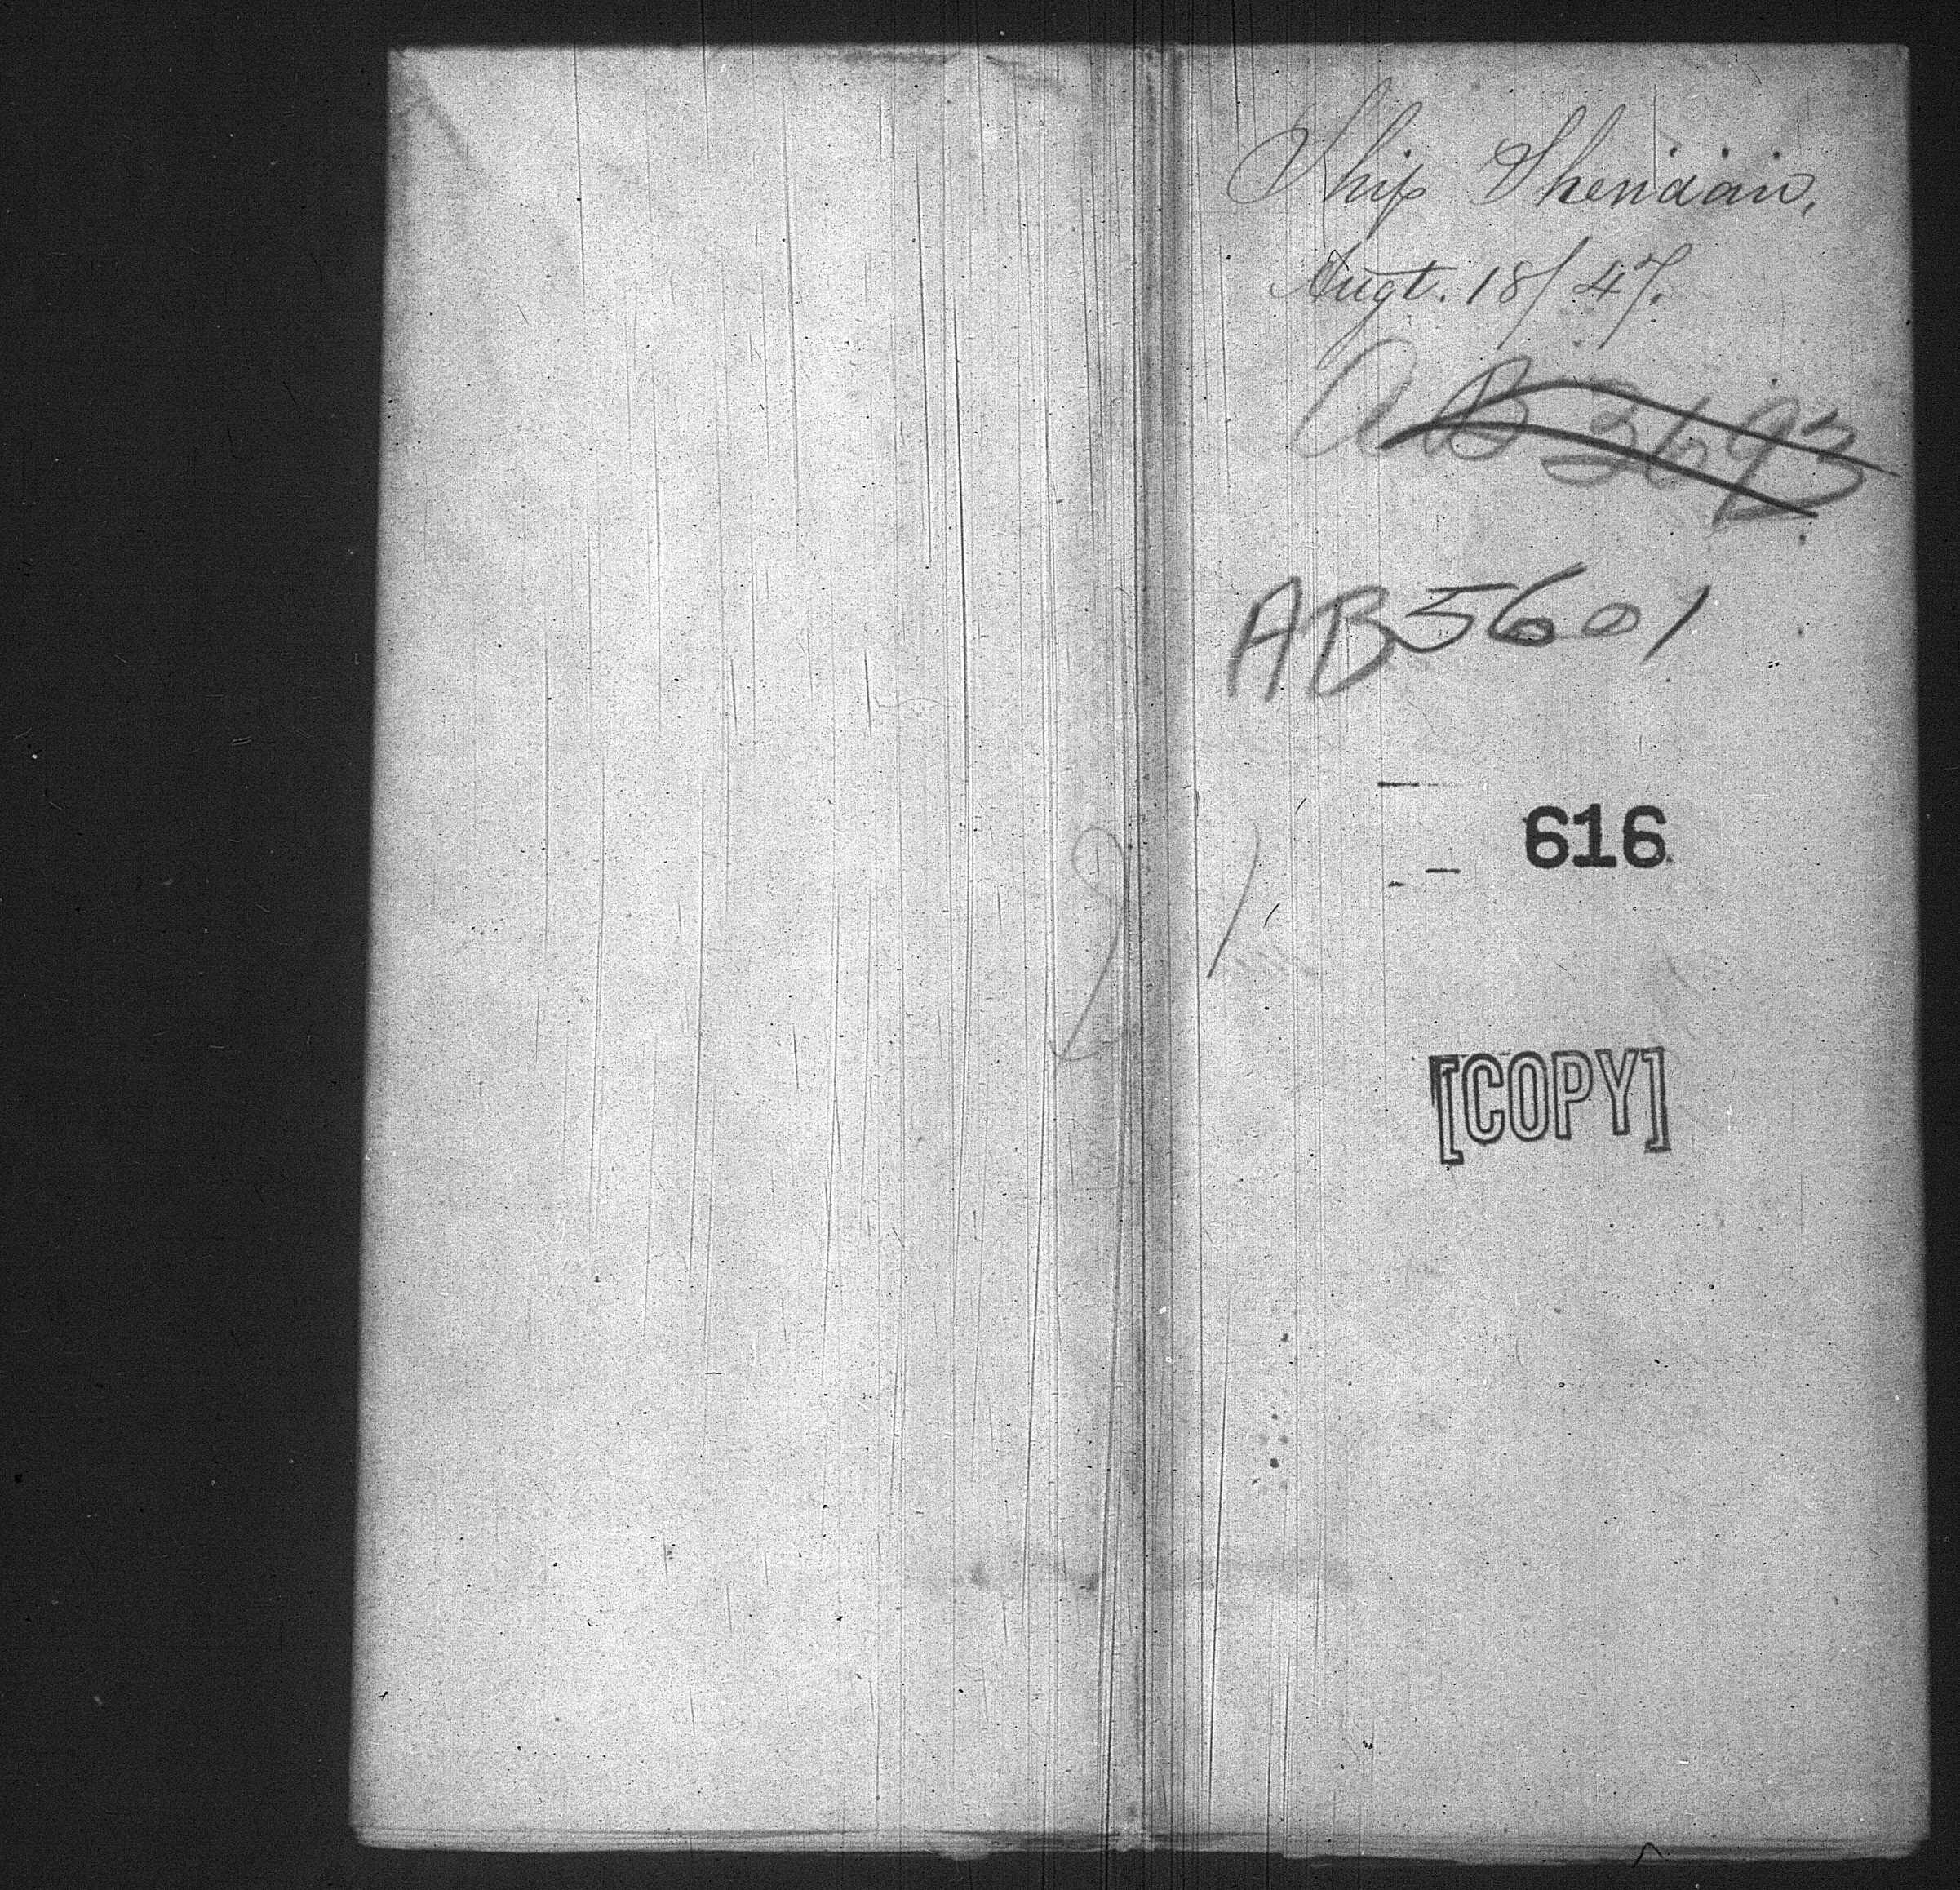 Ship Sheridan,
Augt. 18/47.
AB 3693
AB5601
616
[COPY]